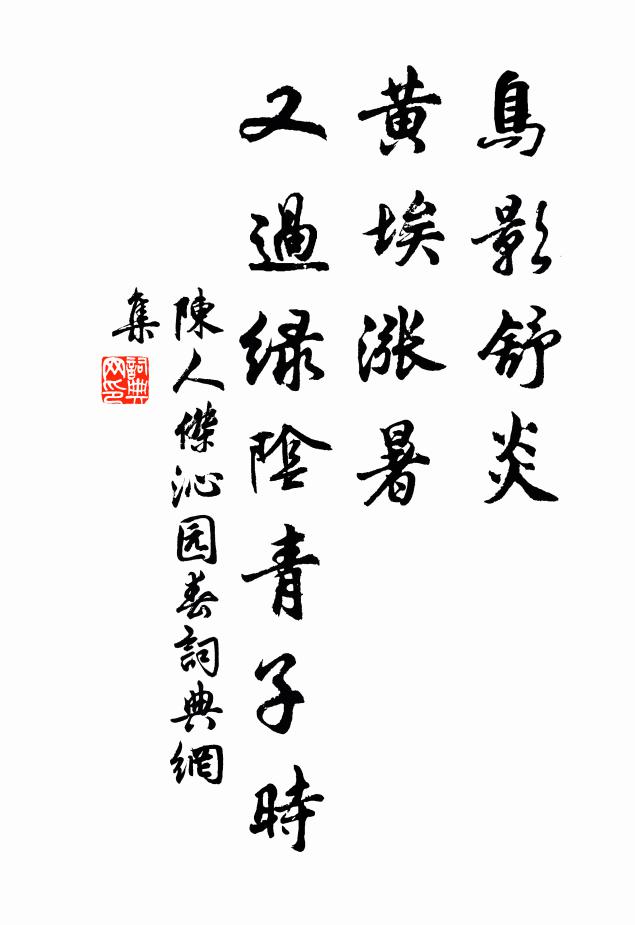 烏影舒炎
黄埃涨暑
又過绿陰青子時
陳人傑沁园春詞典網
集
詞典
网印